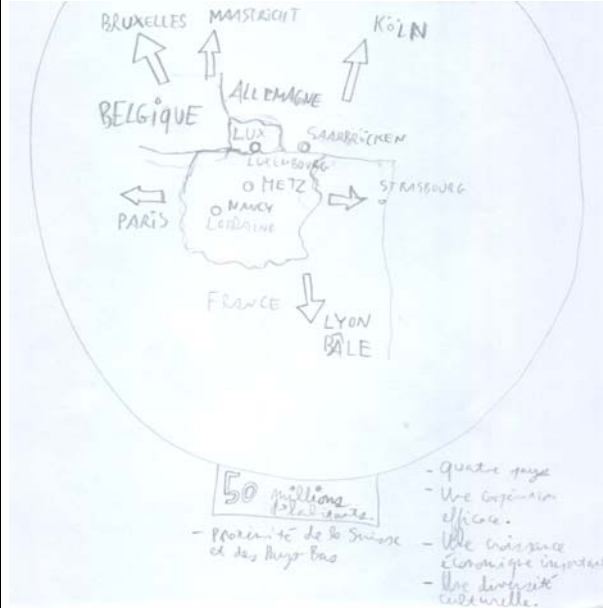 BRUXELLES
MAASTRICHT
KÖLN
ALLEMAGNE
BELGiQUE
LUX
SAARBRÜCKEN
LUXEMBOURG
METZ
STRASBOURG
NANCY
PARIS
LORRAINE
FRANCE
LYON
BÂLE
50 millions
d'habitants.
- Proximité de la Suisse
et des Pays-Bas
- quatre pays
- Une coopération
efficace.
- Une croissance
économique importante
- Une diversité
culturelle.